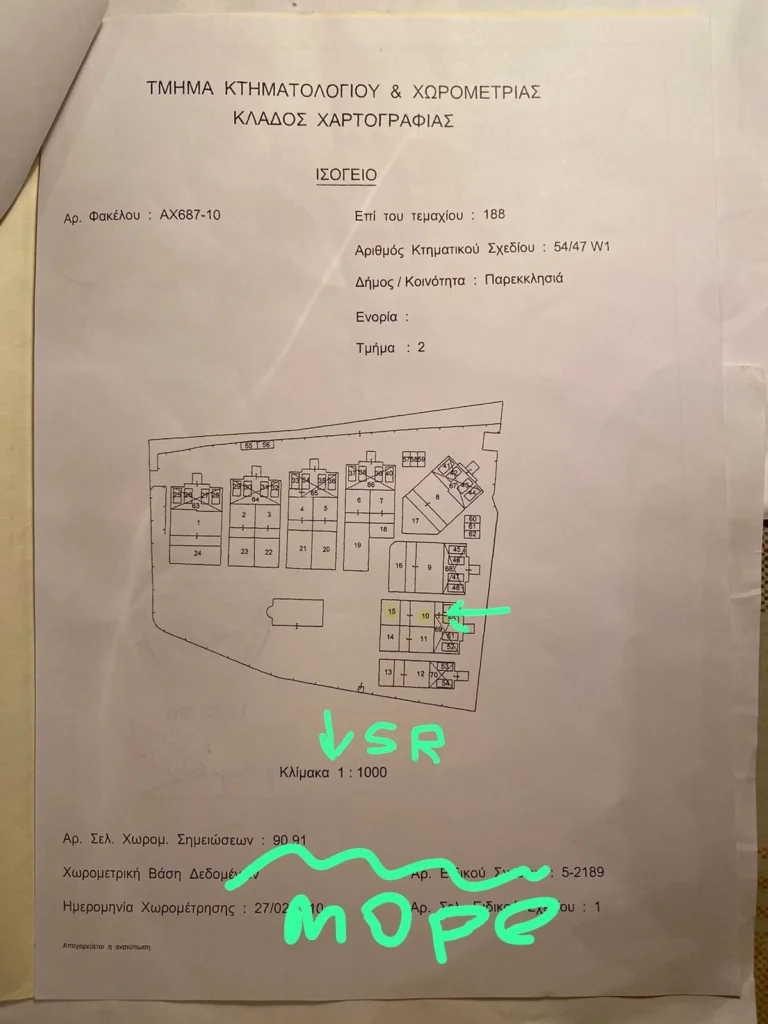 ΤΜΗΜΑ ΚΤΗΜΑΤΟΛΟΓΙΟΥ & ΧΩΡΟΜΕΤΡΙΑΣ
ΚΛΑΔΟΣ ΧΑΡΤΟΓΡΑΦΙΑΣ
ΙΣΟΓΕΙΟ
Αρ. Φακέλου : ΑΧ687-10
Επί του τεμαχίου : 188
Αριθμός Κτηματικού Σχεδίου : 54/47 W1
Δήμος / Κοινότητα : Παρεκκλησιά
Ενορία :
Τμήμα : 2
55 56
57 58 59
63 64 65 66
67
1 2 3 4 5 6 7 8
17
18
60
61
62
24 23 22 21 20 19
16 9
45
48
15 10
69
14 11
51
52
13 12 70
53
54
SR
Κλίμακα 1 : 1000
Αρ. Σελ. Χωρομ. Σημειώσεων : 90 91
Χωρομετρική Βάση Δεδομένων
: 5-2189
Ημερομηνία Χωρομέτρησης : 27/02
: 1
море
Απαγορεύεται η ανατύπωση